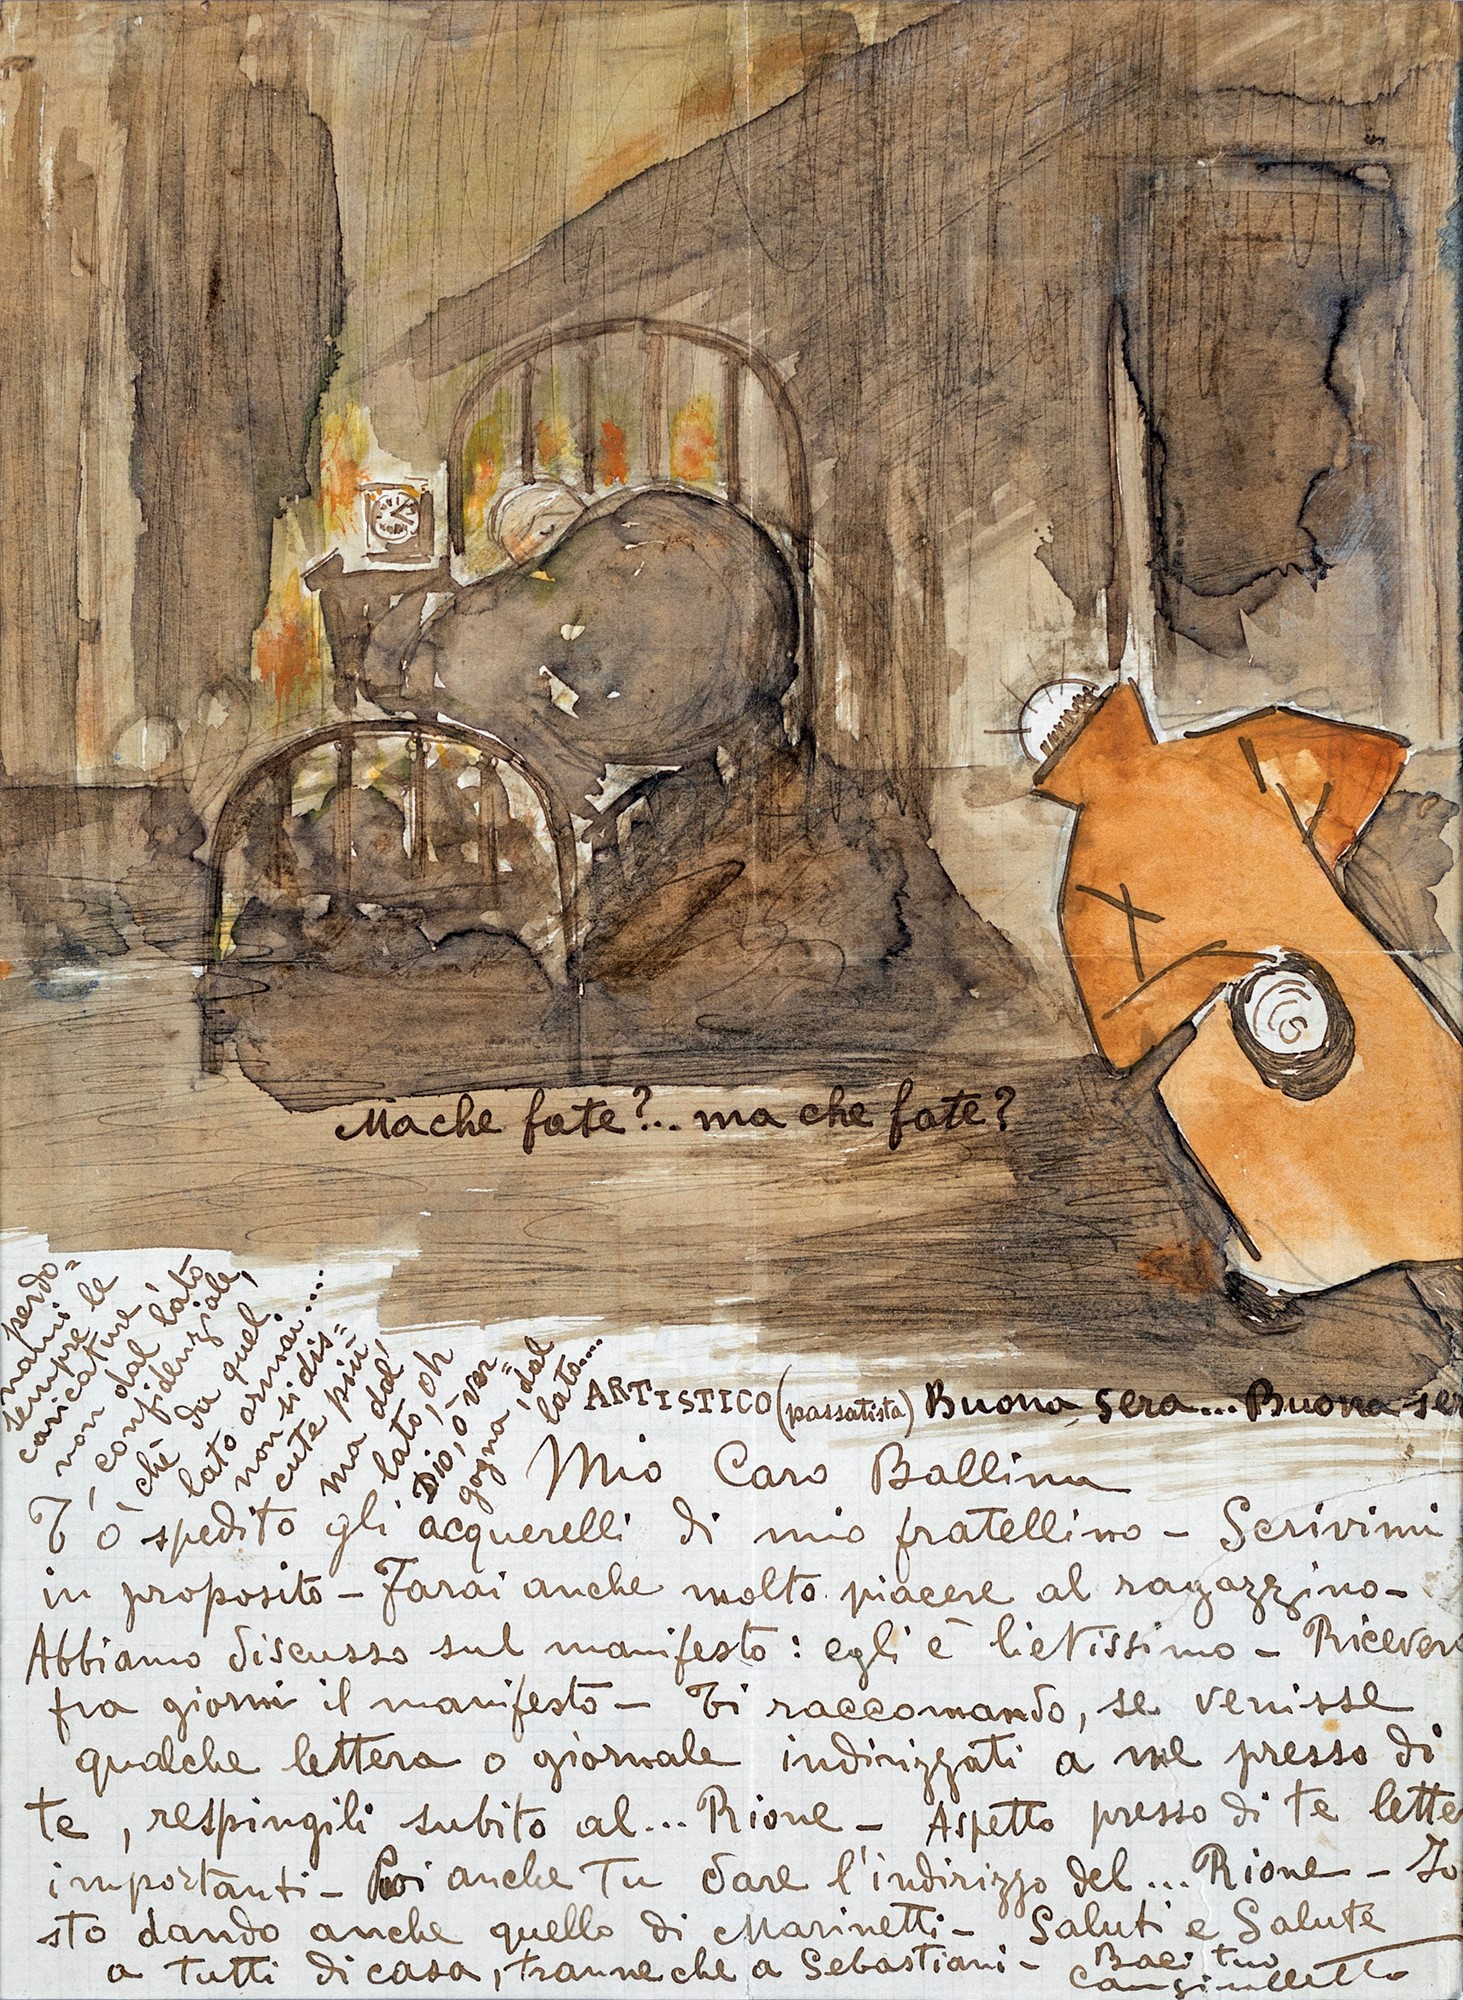 Ma che fate?... ma che fate?
perdo=
nami le
sempre
caricature
non dal lato
confidenziale,
chè da quel
lato ormai....
non si dis=
cute più,
ma dal
lato, oh
Dio, ò ver=
gogna 'dal
lato....
ARTISTICO (passatista) Buona sera... Buona ser
Mio Caro Ballina
T'ò spedito gli acquerelli di mio fratellino - Scrivimi
in proposito - Farai anche molto piacere al ragazzino -
Abbiamo discusso sul manifesto : egli è lietissimo - Ricever
fra giorni il manifesto - Ti raccomando, se venisse
qualche lettera o giornale indirizzati a me presso di
te, respingili subito al... Rione - Aspetto presso di te lette
importanti - Poi anche Tu dare l'indirizzo del... Rione - Io
sto dando anche quello di Marinetti - Saluti e Salute
a tutti di casa, tranne che a Sebastiani -
Baci tuo
Cangiulletto